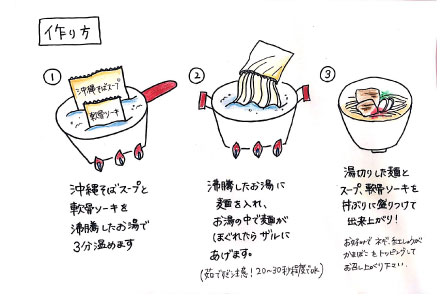 作り方
①
沖縄そばスープ
軟骨ソーキ
沖縄そばスープと
軟骨ソーキを
沸騰したお湯で
3分温めます
②
沸騰したお湯に
麺を入れ、
お湯の中で麺が
ほぐれたら ザルに
あげます。
(茹ですぎ注意！20〜30秒程度でOK)
③
湯切りした麺と
スープ、軟骨ソーキを
丼ぶりに盛りつけて
出来上がり！
お好みで ネギ、紅しょうが
かまぼこを トッピングして
お召し上がり下さい。